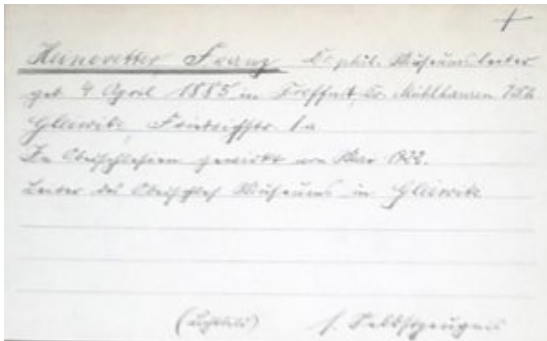 +
Heinevetter Franz Dr. phil. Museumsleiter
geb. 4 April 1885 in Treffurt, Kr. Mühlhausen
Gleiwitz, Friedrichstr. 1a
In Oberschlesien gewirkt von Mai 1922.
Leiter des Oberschles Museums in Gleiwitz
(Lichtbild) s. Selbstzeugnis